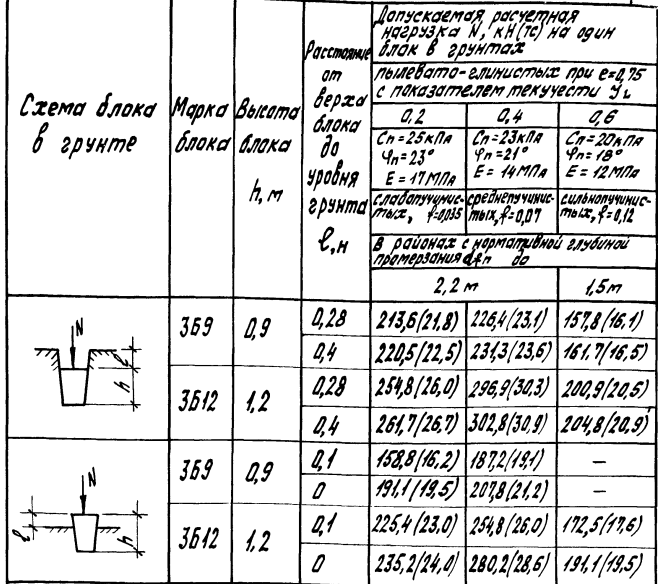 Схема блока
в грунте
Марка
блока
Высота
блока
h, м
Расстояние
от
верха
блока
до
уровня
грунта
ℓ, н
Допускаемая расчетная
нагрузка N, кН(тс) на один
блок в грунтах
пылевато-глинистых при e=0,75
с показателем текучести JL
0,2
0,4
0,6
Cn=25кПа
φn=23°
E=17МПа
Cn=23кПа
φn=21°
E=14МПа
Cn=20кПа
φn=18°
E=12МПа
слабопучинис-
тых, f=0,035
среднепучинис-
тых, f=0,07
сильнопучинис-
тых, f=0,12
в районах с нормативной глубиной
промерзания dfn до
2,2 м
1,5м
N
ℓ
h
3Б9
0,9
0,28
213,6(21,8)
226,4(23,1)
157,8(16,1)
0,4
220,5(22,5)
231,3(23,6)
161,7(16,5)
3Б12
1,2
0,28
254,8(26,0)
296,9(30,3)
200,9(20,5)
0,4
261,7(26,7)
302,8(30,9)
204,8(20,9)
N
ℓ
h
3Б9
0,9
0,1
158,8(16,2)
187,2(19,1)
—
0
191,1(19,5)
207,8(21,2)
—
3Б12
1,2
0,1
225,4(23,0)
254,8(26,0)
172,5(17,6)
0
235,2(24,0)
280,2(28,6)
191,1(19,5)